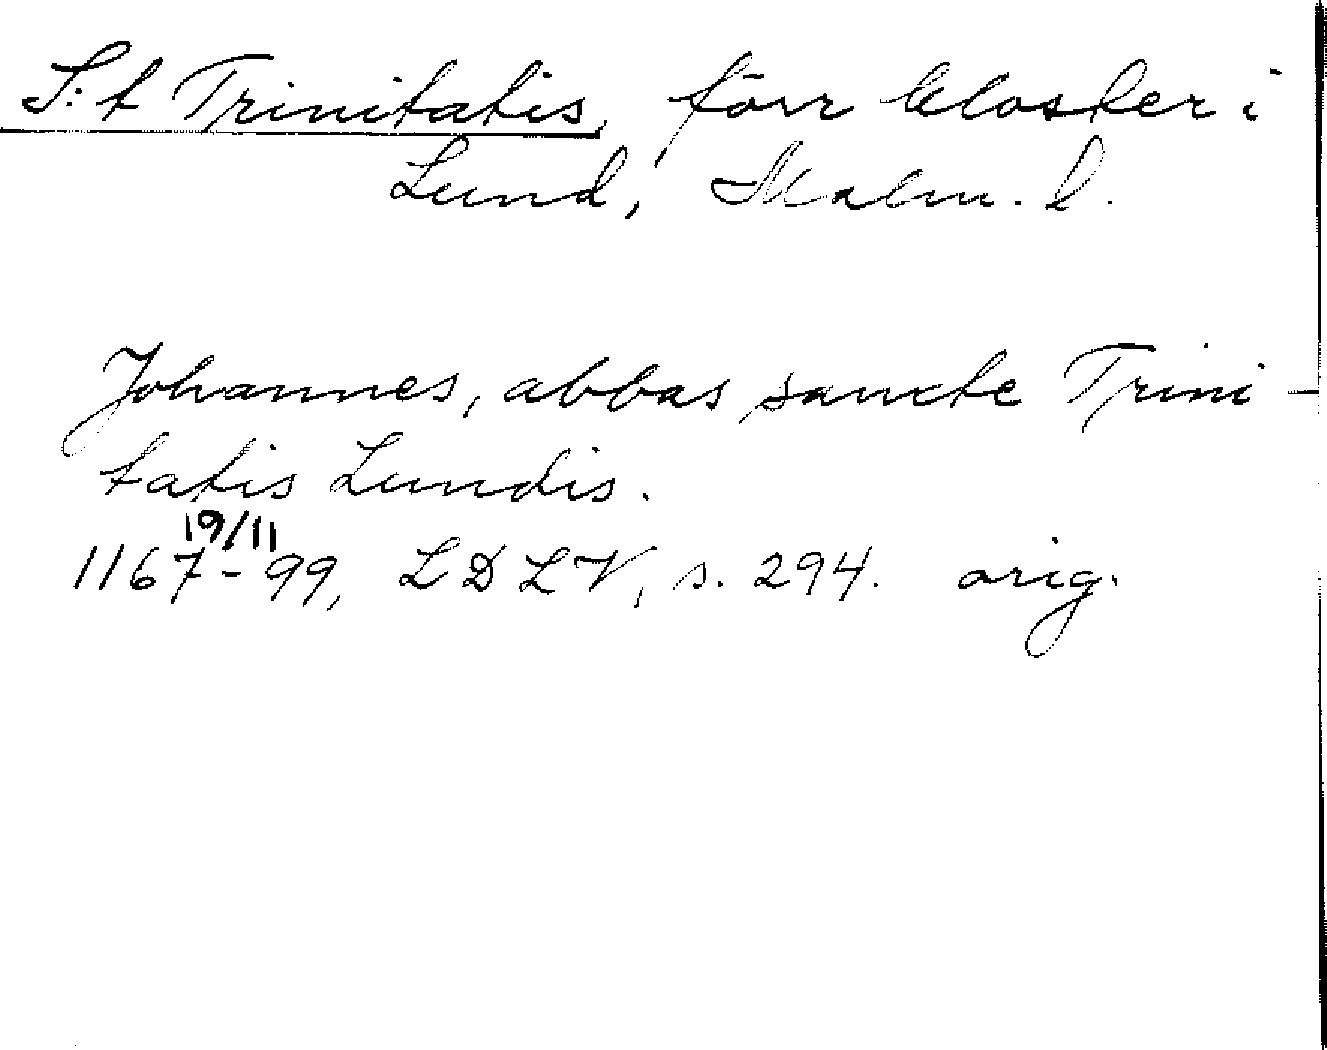 S:t Trinitatis, förr kloster i
Lund, Malm. l.
Johannes, abbas sancte Trini-
tatis Lundis.
19/11
1167-99, LDLV, s. 294. orig.